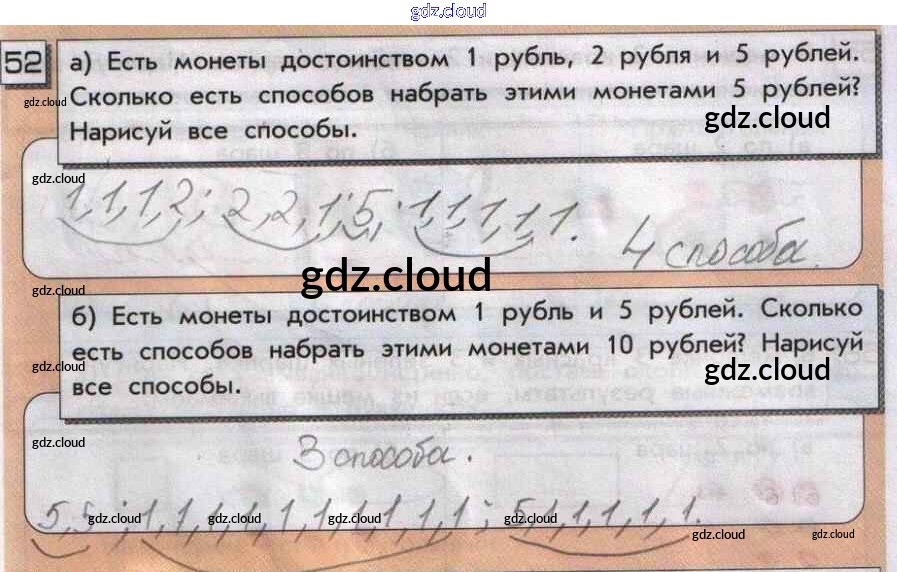 gdz.cloud
52 а) Есть монеты достоинством 1 рубль, 2 рубля и 5 рублей.
gdz.cloud
Сколько есть способов набрать этими монетами 5 рублей?
gdz.cloud
Нарисуй все способы.
gdz.cloud
1,1,1,2; 2,2,1; 5; 1,1,1,1,1.
4 способа.
gdz.cloud
gdz.cloud
б) Есть монеты достоинством 1 рубль и 5 рублей. Сколько
есть способов набрать этими монетами 10 рублей? Нарисуй
gdz.cloud
gdz.cloud
все способы.
gdz.cloud
3 способа.
5,5; 1,1,1,1,1,1,1,1,1,1; 5,1,1,1,1,1.
gdz.cloud gdz.cloud gdz.cloud gdz.cloud gdz.cloud
gdz.cloud gdz.cloud